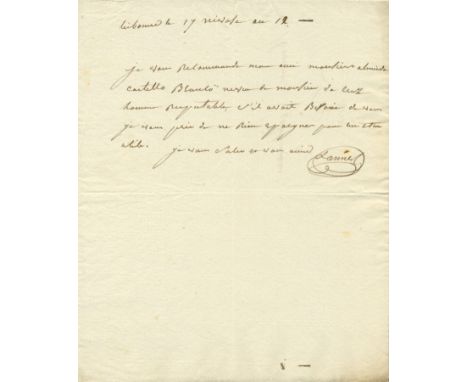 lisbonne le 17 nivose an 12 —
je vous Recommande mon ami monsieur almeida
castello Branco neveu de monsieur de
homme respectable s'il avait Besoin de vous
je vous prie de ne Rien epargner pour lui etre
utile.
je vous salue et vous aime
Lannes